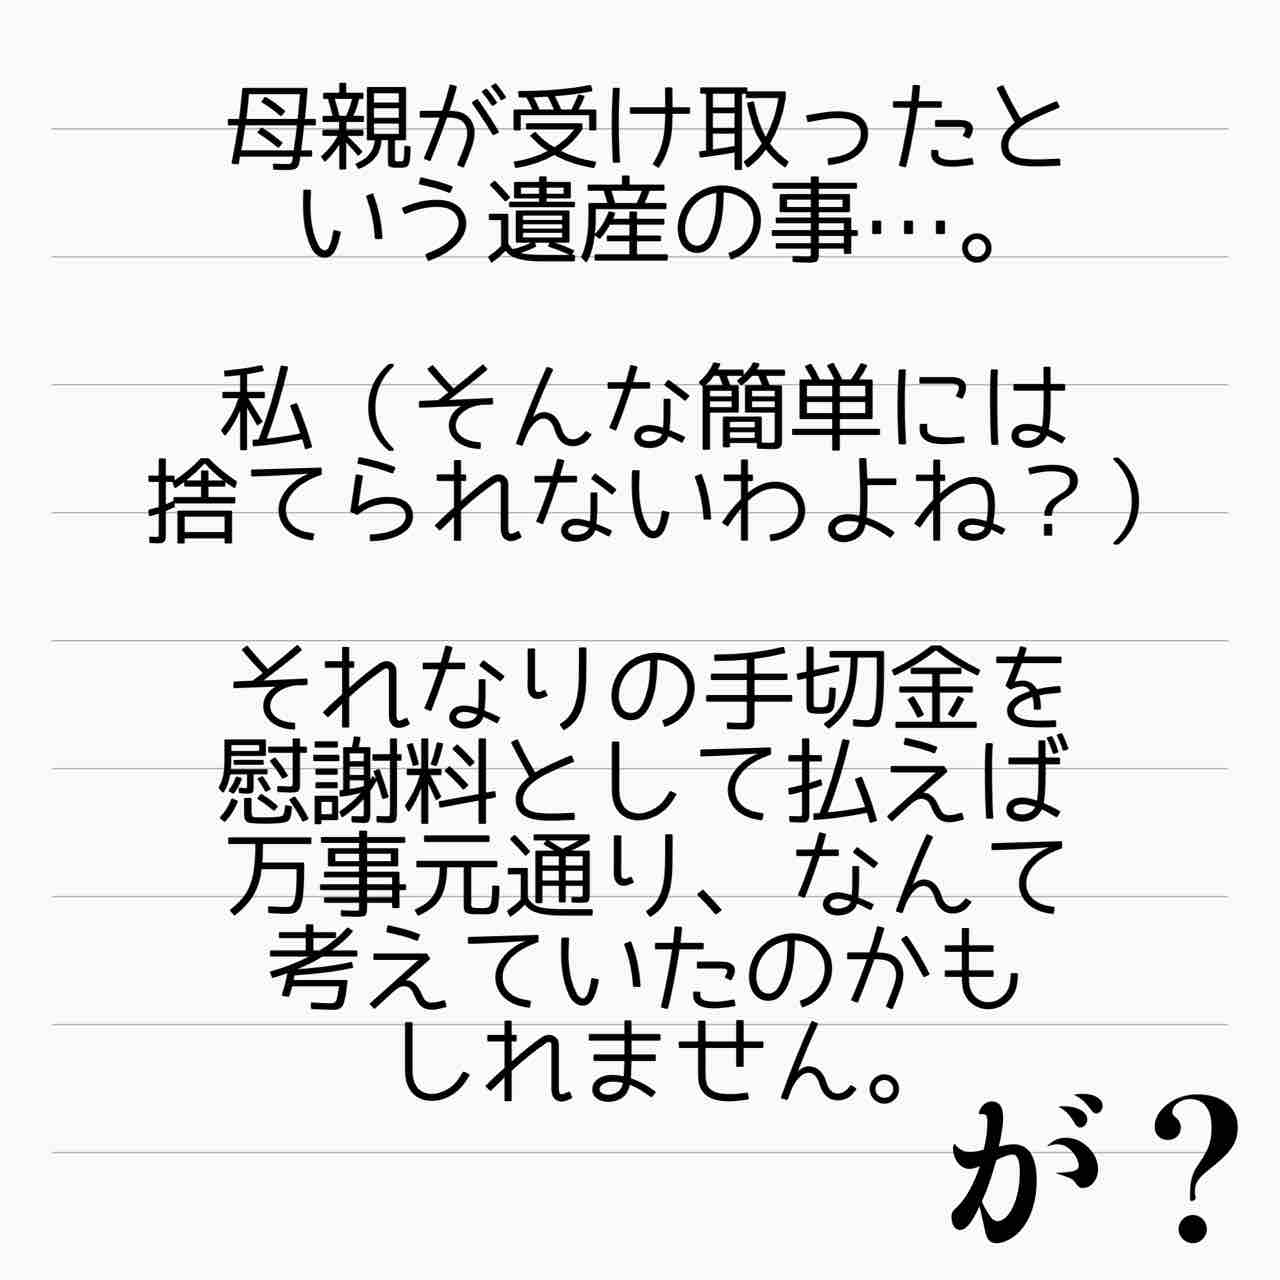 母親が受け取ったと
いう遺産の事…。
私（そんな簡単には
捨てられないわよね？）
それなりの手切金を
慰謝料として払えば
万事元通り、なんて
考えていたのかも
しれません。
が？